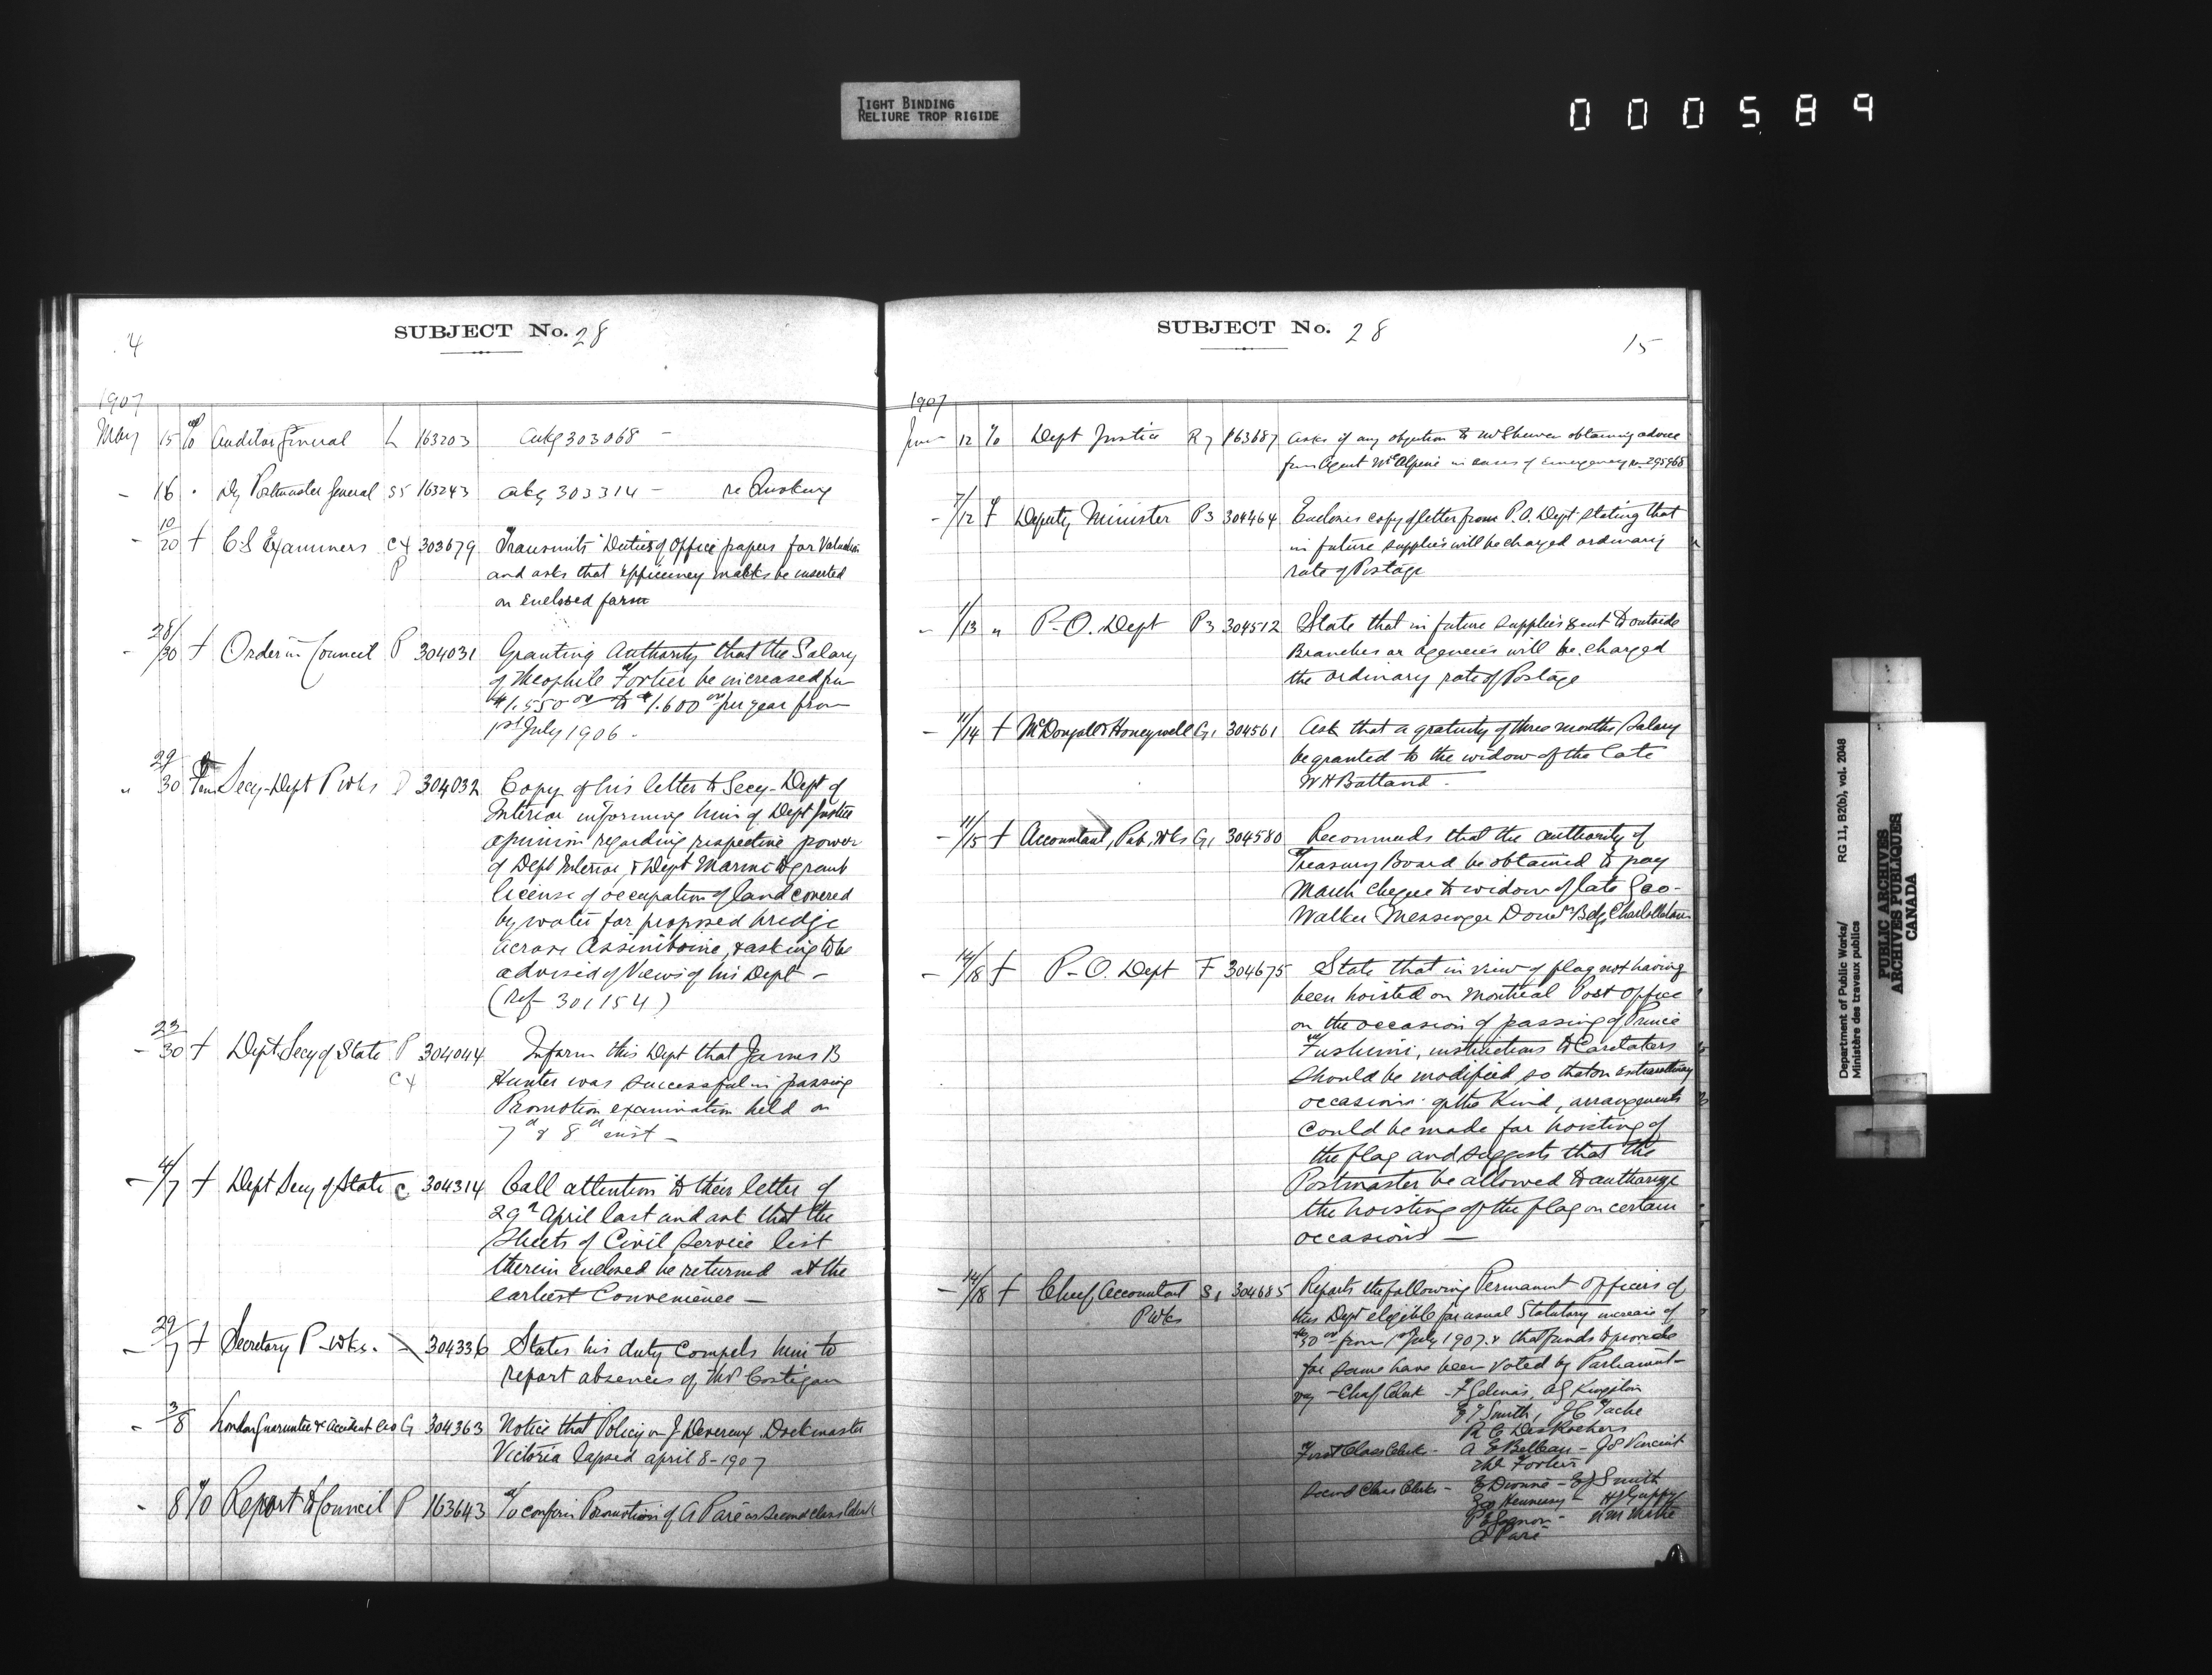 TIGHT BINDING
RELIURE TROP RIGIDE
000589
4
SUBJECT No. 28
1907
May 15 To Auditor General L 163203 ackg 303068 -
- 16 " Dy Postmaster General 163243 ackg 303314 - re
- 10/20 f C S Examiners C4 P 303679 Transmits Duties of Office papers for Valuation
and asks that efficiency marks be inserted
on enclosed form
- 28/30 f Order in Council P 304031 Granting Authority that the Salary
of Theophile Fortier be increased from
$1.550 00 to $1.600 00 per year from
1st July 1906 -
" 29/30 Secy- Dept P Wks 304032 Copy of his letter to Secy- Dept of
Interior informing him of Dept Justice
opinion regarding respective power
of Dept Interior & Dept Marine to grant
license of occupation of land covered
by water for proposed bridge
across Assiniboine, & asking to be
advised of Views of his Dept -
(Ref- 301154)
- 23/30 f Dept Secy of State P C4 304044 Inform this Dept that James B
Hunter was successful in passing
Promotion examination held on
7th & 8th inst -
- 4/7 f Dept Secy of State C 304314 Call attention to their letter of
29th April last and ask that the
Sheets of Civil Service list
therein enclosed be returned at the
earliest Convenience -
- 29/7 f Secretary P Wks. 304336 States his duty compels him to
report absences of Costigan
- 3/8 London Guarantee & Accident Co G 304363 Notice that Policy on J Devereux Dockmaster
Victoria lapsed april 8 - 1907
- 8 To Report to Council P 163643 To confirm Promotion of A Paré as Second class Clerk
SUBJECT No. 28
15
1907
June 12 To Dept Justice R7 163687 asks if any objection to Mr obtaining advice
from Agent McAlpine in cases of Emergency re 295968
- 7/12 f Deputy Minister P3 304464 Encloses copy of letter from P.O. Dept stating that
in future supplies will be charged ordinary
rate of Postage
- 11/13 " P-O. Dept P3 304512 State that in future supplies sent to outside
Branches or agencies will be charged
the ordinary rate of Postage
- 11/14 f McDougall & Honeywell G1 304561 Ask that a gratuity of three months Salary
be granted to the widow of the late
W H
- 11/15 f Accountant, Pub. Wks G1 304580 Recommends that the authority of
Treasury Board be obtained to pay
March cheque to widow of late Geo-
Walker Messenger Domn Bdg Charlottetown
- 14/18 f P-O. Dept F 304675 State that in view of flag not having
been hoisted on Montreal Post Office
on the occasion of passing of Prince
Fushimi, instructions to Caretakers
should be modified so that on extraordinary
occasions of the Kind, arrangements
could be made for hoisting of
the flag and suggests that the
Postmaster be allowed to authorize
the hoisting of the flag on certain
occasions -
- 14/18 f Chief Accountant S1 304685 Reports the following Permanent officers of
P Wks this Dept eligible for usual Statutory increase of
$50 00 from 1st July 1907 & that funds to provide
for same have been voted by Parliament -
viz - Chief Clerk - F Gelinas, A G Kingston
Smith, J C Tache
R C DesRochers
First Class Clerks - A E Belleau - J S Vincent
The Fortier
Second Class Clerks - E Dionne - E J Smith
Geo Hennessy - H J Guppy
P E Gagnon -
A Paré
Department of Public Works/ RG 11, B2(b), vol. 2048
Ministère des travaux publics
PUBLIC ARCHIVES
ARCHIVES PUBLIQUES
CANADA